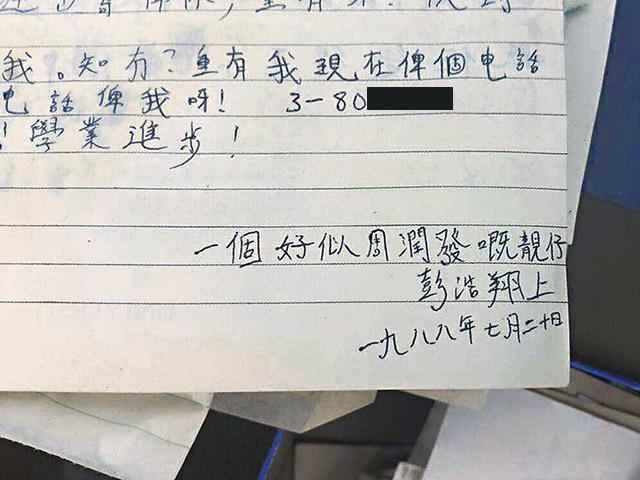 我。知冇？重有我現在俾個电話
电話俾我呀！ 3-80
！學業進步！
一個好似周潤發嘅靚仔
彭浩翔上
一九八八年七月二十日